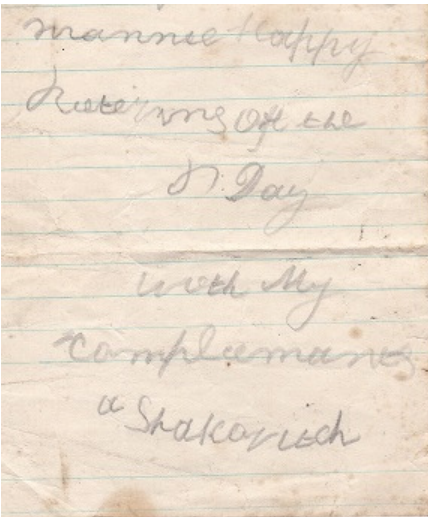 mannie Happy
Reterons off the
Day
with My
complements
a Shakovitch